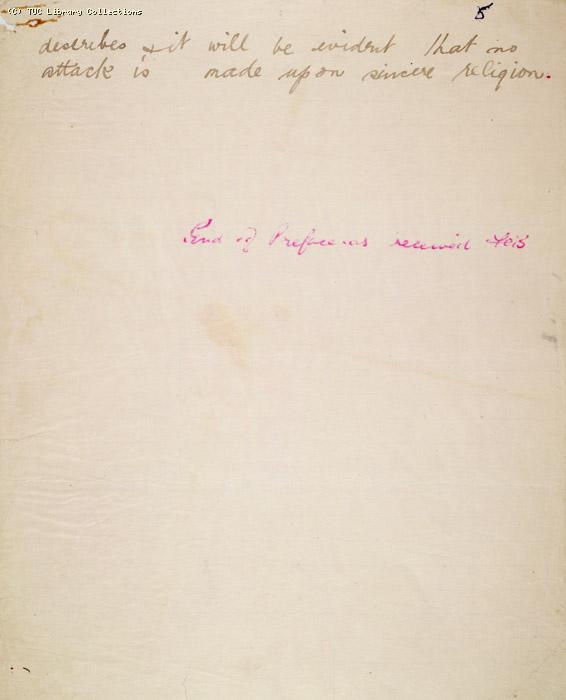 (C) TUC Library Collections
5
describes & it will be evident that no
attack is made upon sincere religion.
End of Preface as received